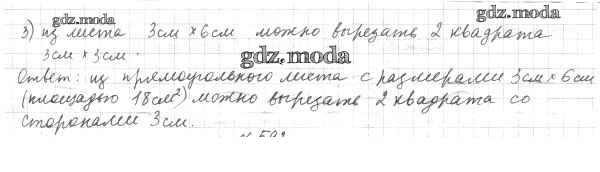 gdz.moda
gdz.moda
3) из листа 3см × 6см можно вырезать 2 квадрата
3см × 3см.
gdz.moda
Ответ: из прямоугольного листа с размерами 3см × 6см
(площадью 18см²) можно вырезать 2 квадрата со
сторонами 3см.